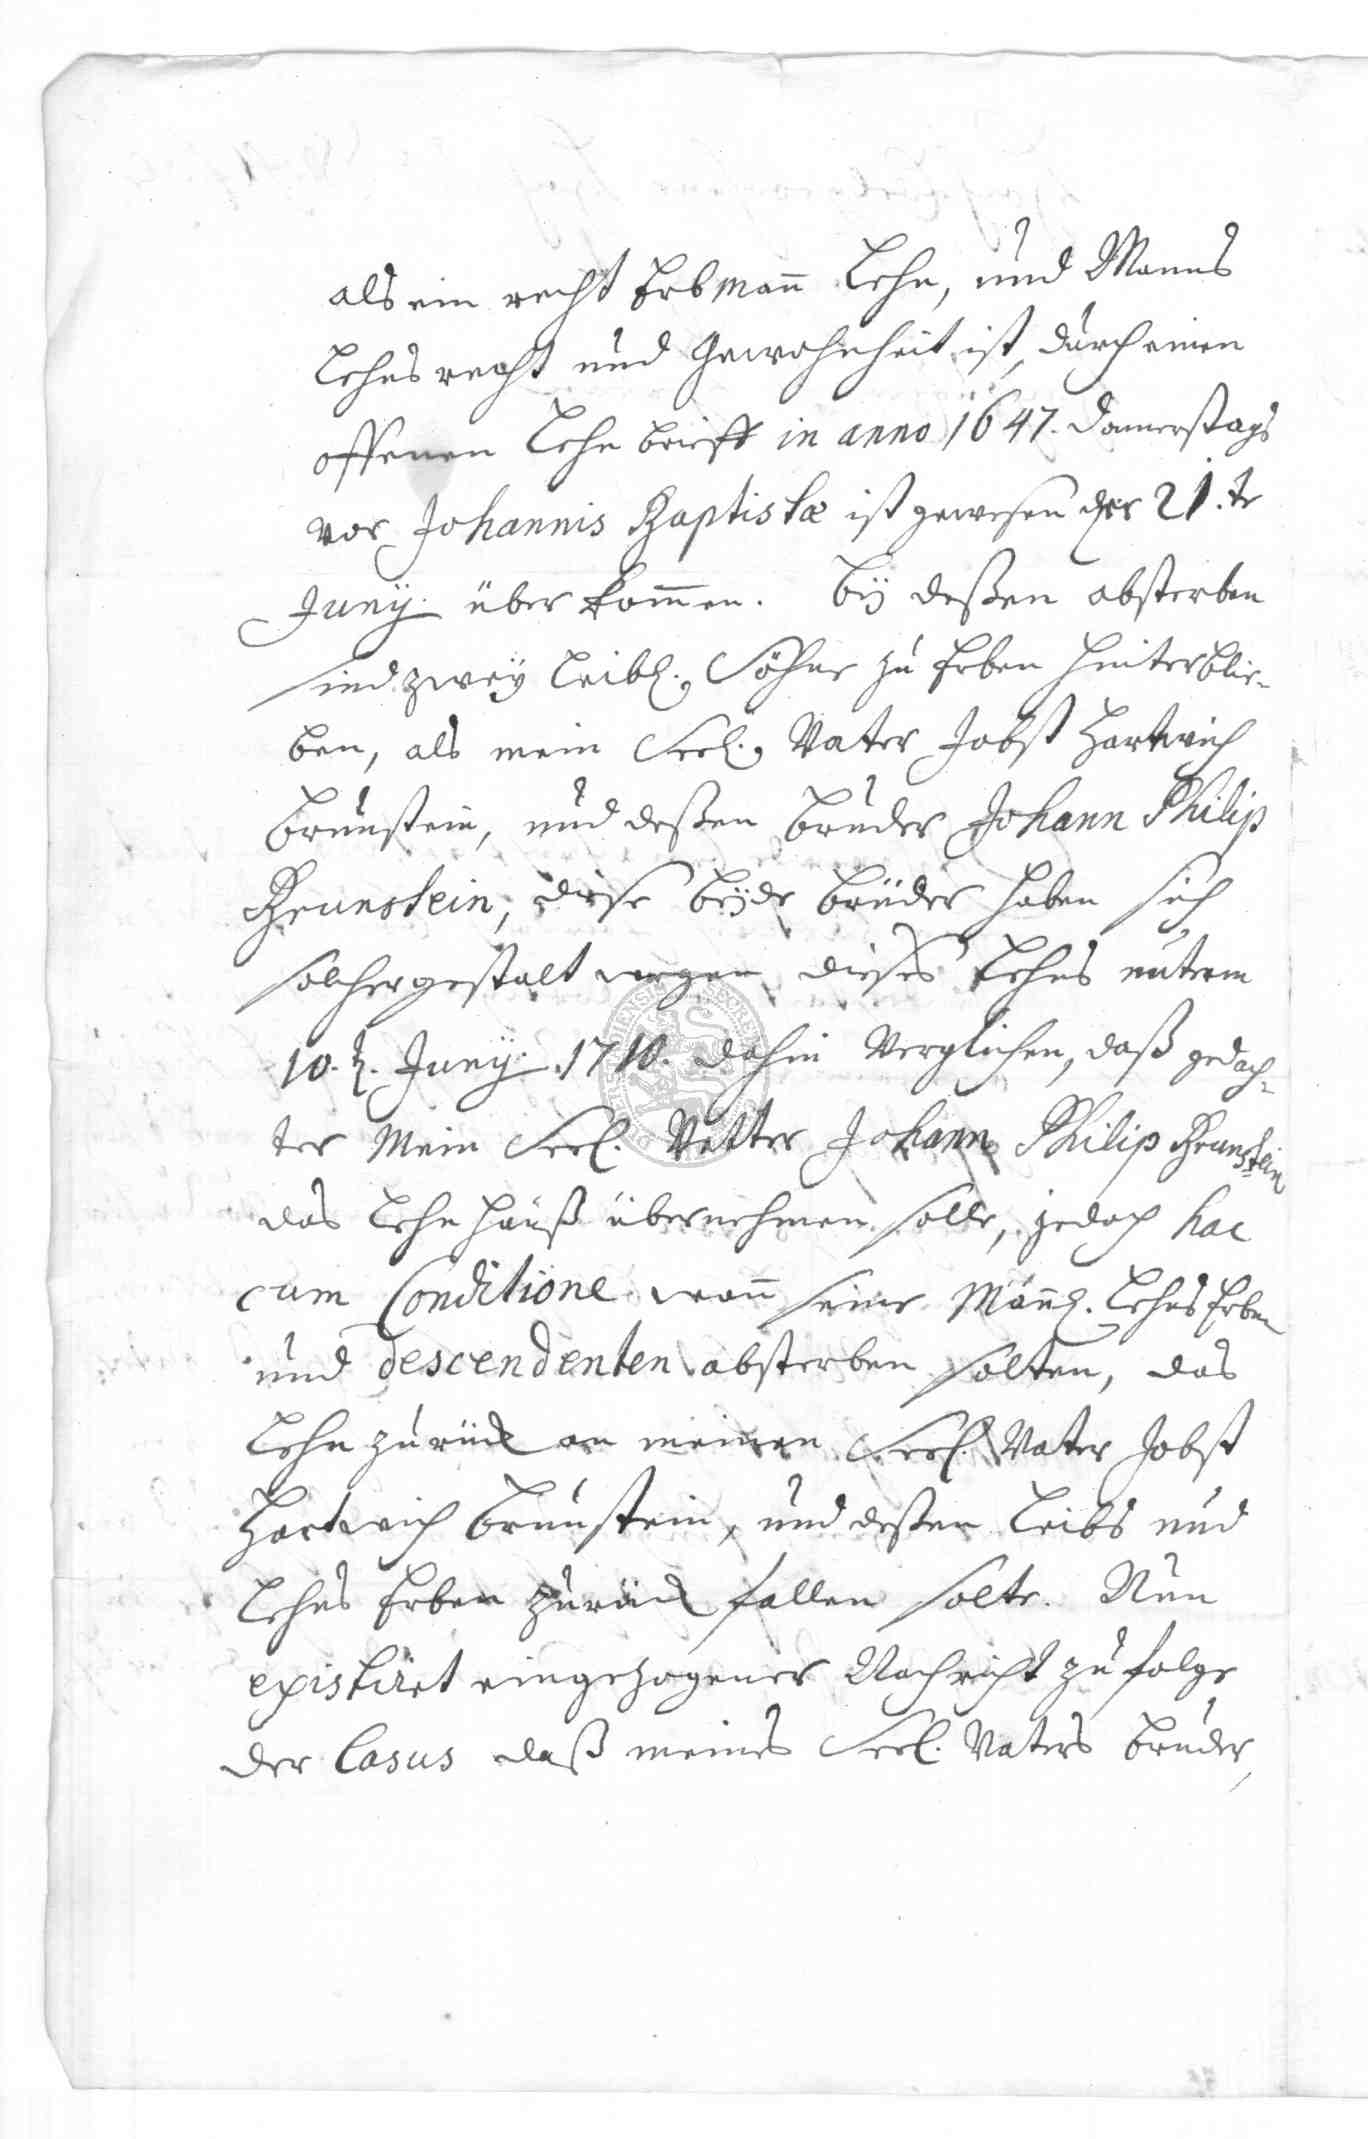 als ein recht Erbmañ Lehn, und Manns
Lehns recht und Gewohnheit ist, durch einen
offenen Lehn brieff in anno 1647. donnerstags
vor Johannis Baptistæ ist gewesen der 21.te
Junÿ. über kom̃en. bÿ deßen absterben
sind zweÿ leibl. Söhne zu Erben hinterblie-
ben, als mein Seel. Vater Jobst Hartwich
Brunstein, und deßen bruder Johann Philip
Brunstein, diese beÿde brüder haben sich
solchergestalt wegen dieses Lehns unterm
10. t. Junÿ. 1710. dahin verglichen, daß gedach-
ter Mein Seel. Vetter Johann Philip Brunstein
das Lehn hauß übernehmen solle, jedoch hac
cum Conditione wañ seine Mañl. Lehns Erben
und descendenten absterben solten, das
Lehn zurück an meinen Seel. Vater Jobst
Hartwich Brunstein, und deßen Leibs und
Lehns Erben zurück fallen solte. Nun
existiret eingezogener Nachricht zu folge
der Casus daß meines Seel. Vaters bruder,